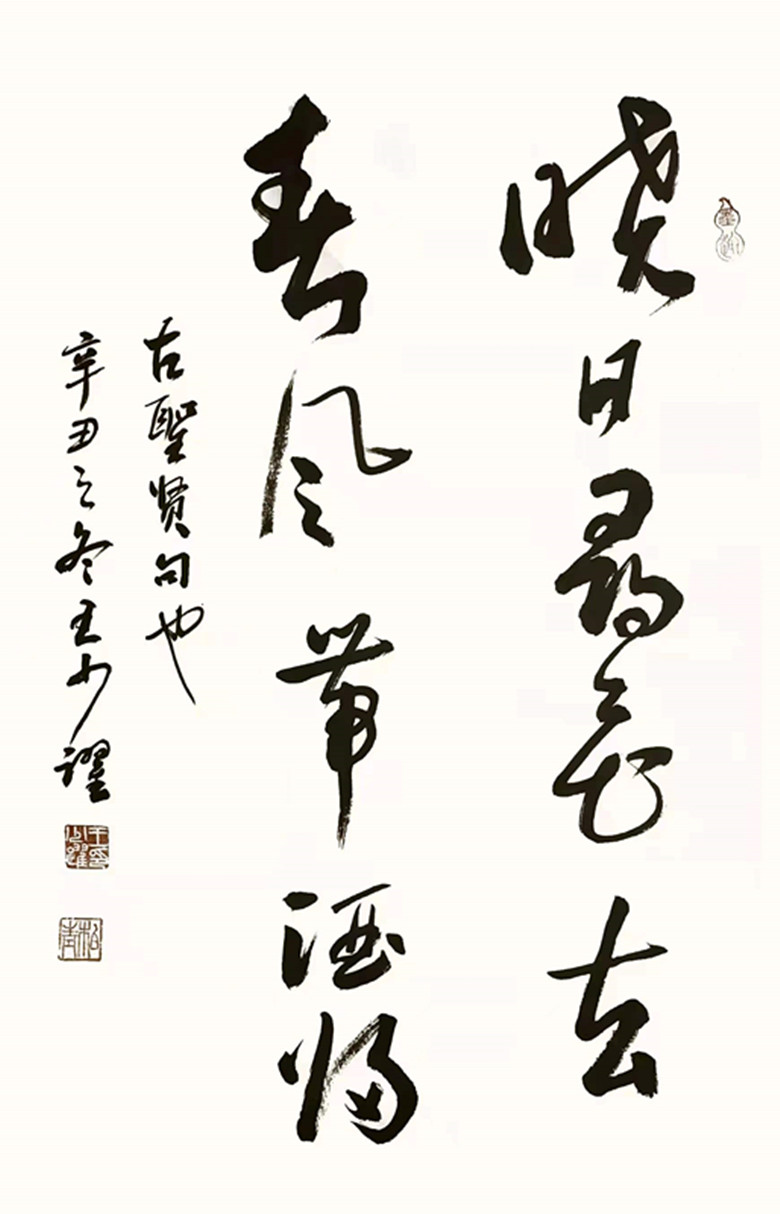 晓日寻花去
春风带酒归
古聖贤句也
辛丑之冬王少躍